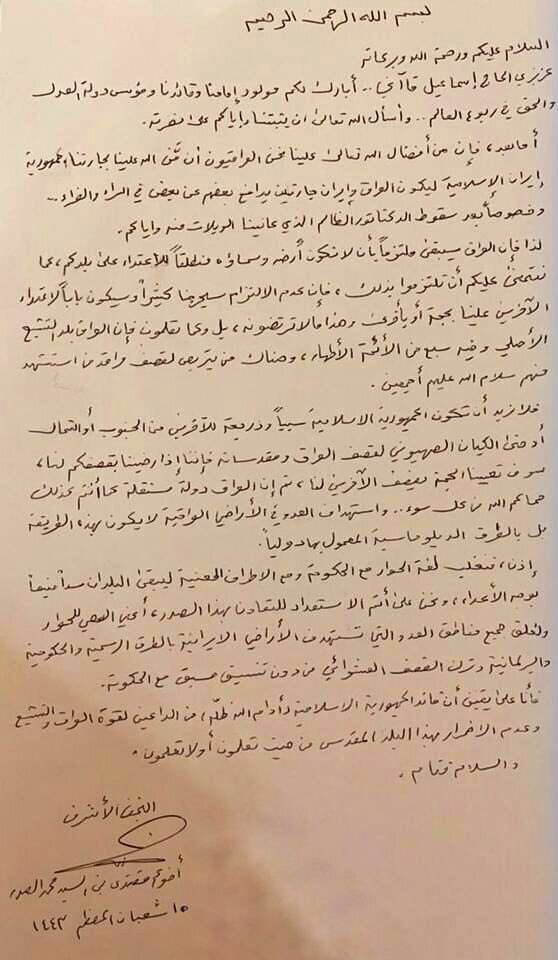 بسم الله الرحمن الرحيم
السلام عليكم ورحمة الله وبركاته
عزيزي الحاج إسماعيل قاآني .. أبارك لكم مولود إمامنا وقائدنا ومؤسس دولة العدل
والحق في ربوع العالم .. وأسأل الله تعالى ان يثبتنا وإياكم على نصرته.
أما بعد، فإن من أفضال الله تعالى علينا نحن العراقيون أن منّ الله علينا بجارتنا الجمهورية
إيران الإسلامية ليكون العراق وإيران جارتين يدافع بعضهم عن بعض في السراء والضراء ...
وخصوصاً بعد سقوط الدكتاتور الظالم الذي عانينا الويلات منه وإياكم.
لذا فإن العراق سيبقى ملتزماً بأن لا تكون أرضه وسماؤه منطلقاً للإعتداء على بلدكم، بما
نتمنى عليكم أن تلتزموا بذلك، فإن عدم الالتزام سيحرجنا كثيراً وسيكون باباً لاعتداء
الآخرين علينا بحجة أو بأخرى وهذا ما لا ترتضونه، بل وكما تعلمون فإن العراق بلد التشيع
الأصلي وفيه سبع من الأئمة الأطهار، وهناك من يتربص لقصف مراقد من استشهد
منهم سلام الله عليهم أجمعين.
فلا نريد أن تكون الجمهورية الاسلامية سبباً وذريعة للآخرين من الجنوب أو الشمال
أو حتى الكيان الصهيوني لقصف العراق ومقدساته فإننا إذا رضينا بقصفكم لنا،
سوف تعيينا الحجة بقصف الآخرين لنا، ثم إن العراق دولة مستقلة كما أنتم كذلك
حماكم الله من كل سوء.. واستهداف العدو في الأراضي العراقية لا يكون بهذه الطريقة
بل بالطرق الدبلوماسية المعمول بها دولياً.
إذن، فنغلب لغة الحوار مع الحكومة ومع الاطراف المعنية ليبقى البلدان سداً منيعاً
بوجه الأعداء، ونحن على أتم الاستعداد للتعاون بهذا الصدد، أعني السعي للحوار
ولغلق جميع مناطق العدو التي تستهدف الأراضي الايرانية بالطرق الرسمية والحكومية
والبرلمانية وترك القصف العشوائي من دون تنسيق مسبق مع الحكومة.
فأنا على يقين أن قائد الجمهورية الاسلامية (أدام الله ظله) من الداعين لقوة العراق والتشيع
وعدم الاضرار بهذا البلد المقدس من حيث تعلمون أو لا تعلمون.
والسلام ختام.
النجف الأشرف
أخوكم مقتدى بن السيد محمد الصدر
١٥ شعبان المعظم ١٤٤٣